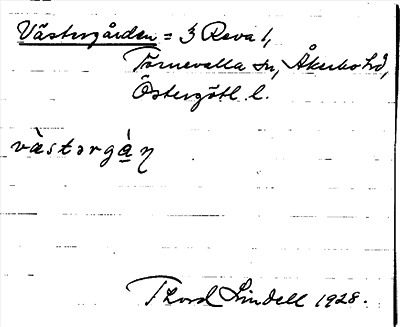 Västergården = 3 Reva 1,
Törnevalla sn, Åkerbo hd,
Östergötl. l.
västərgɑ̀ŋ
Thord Lindell 1928.